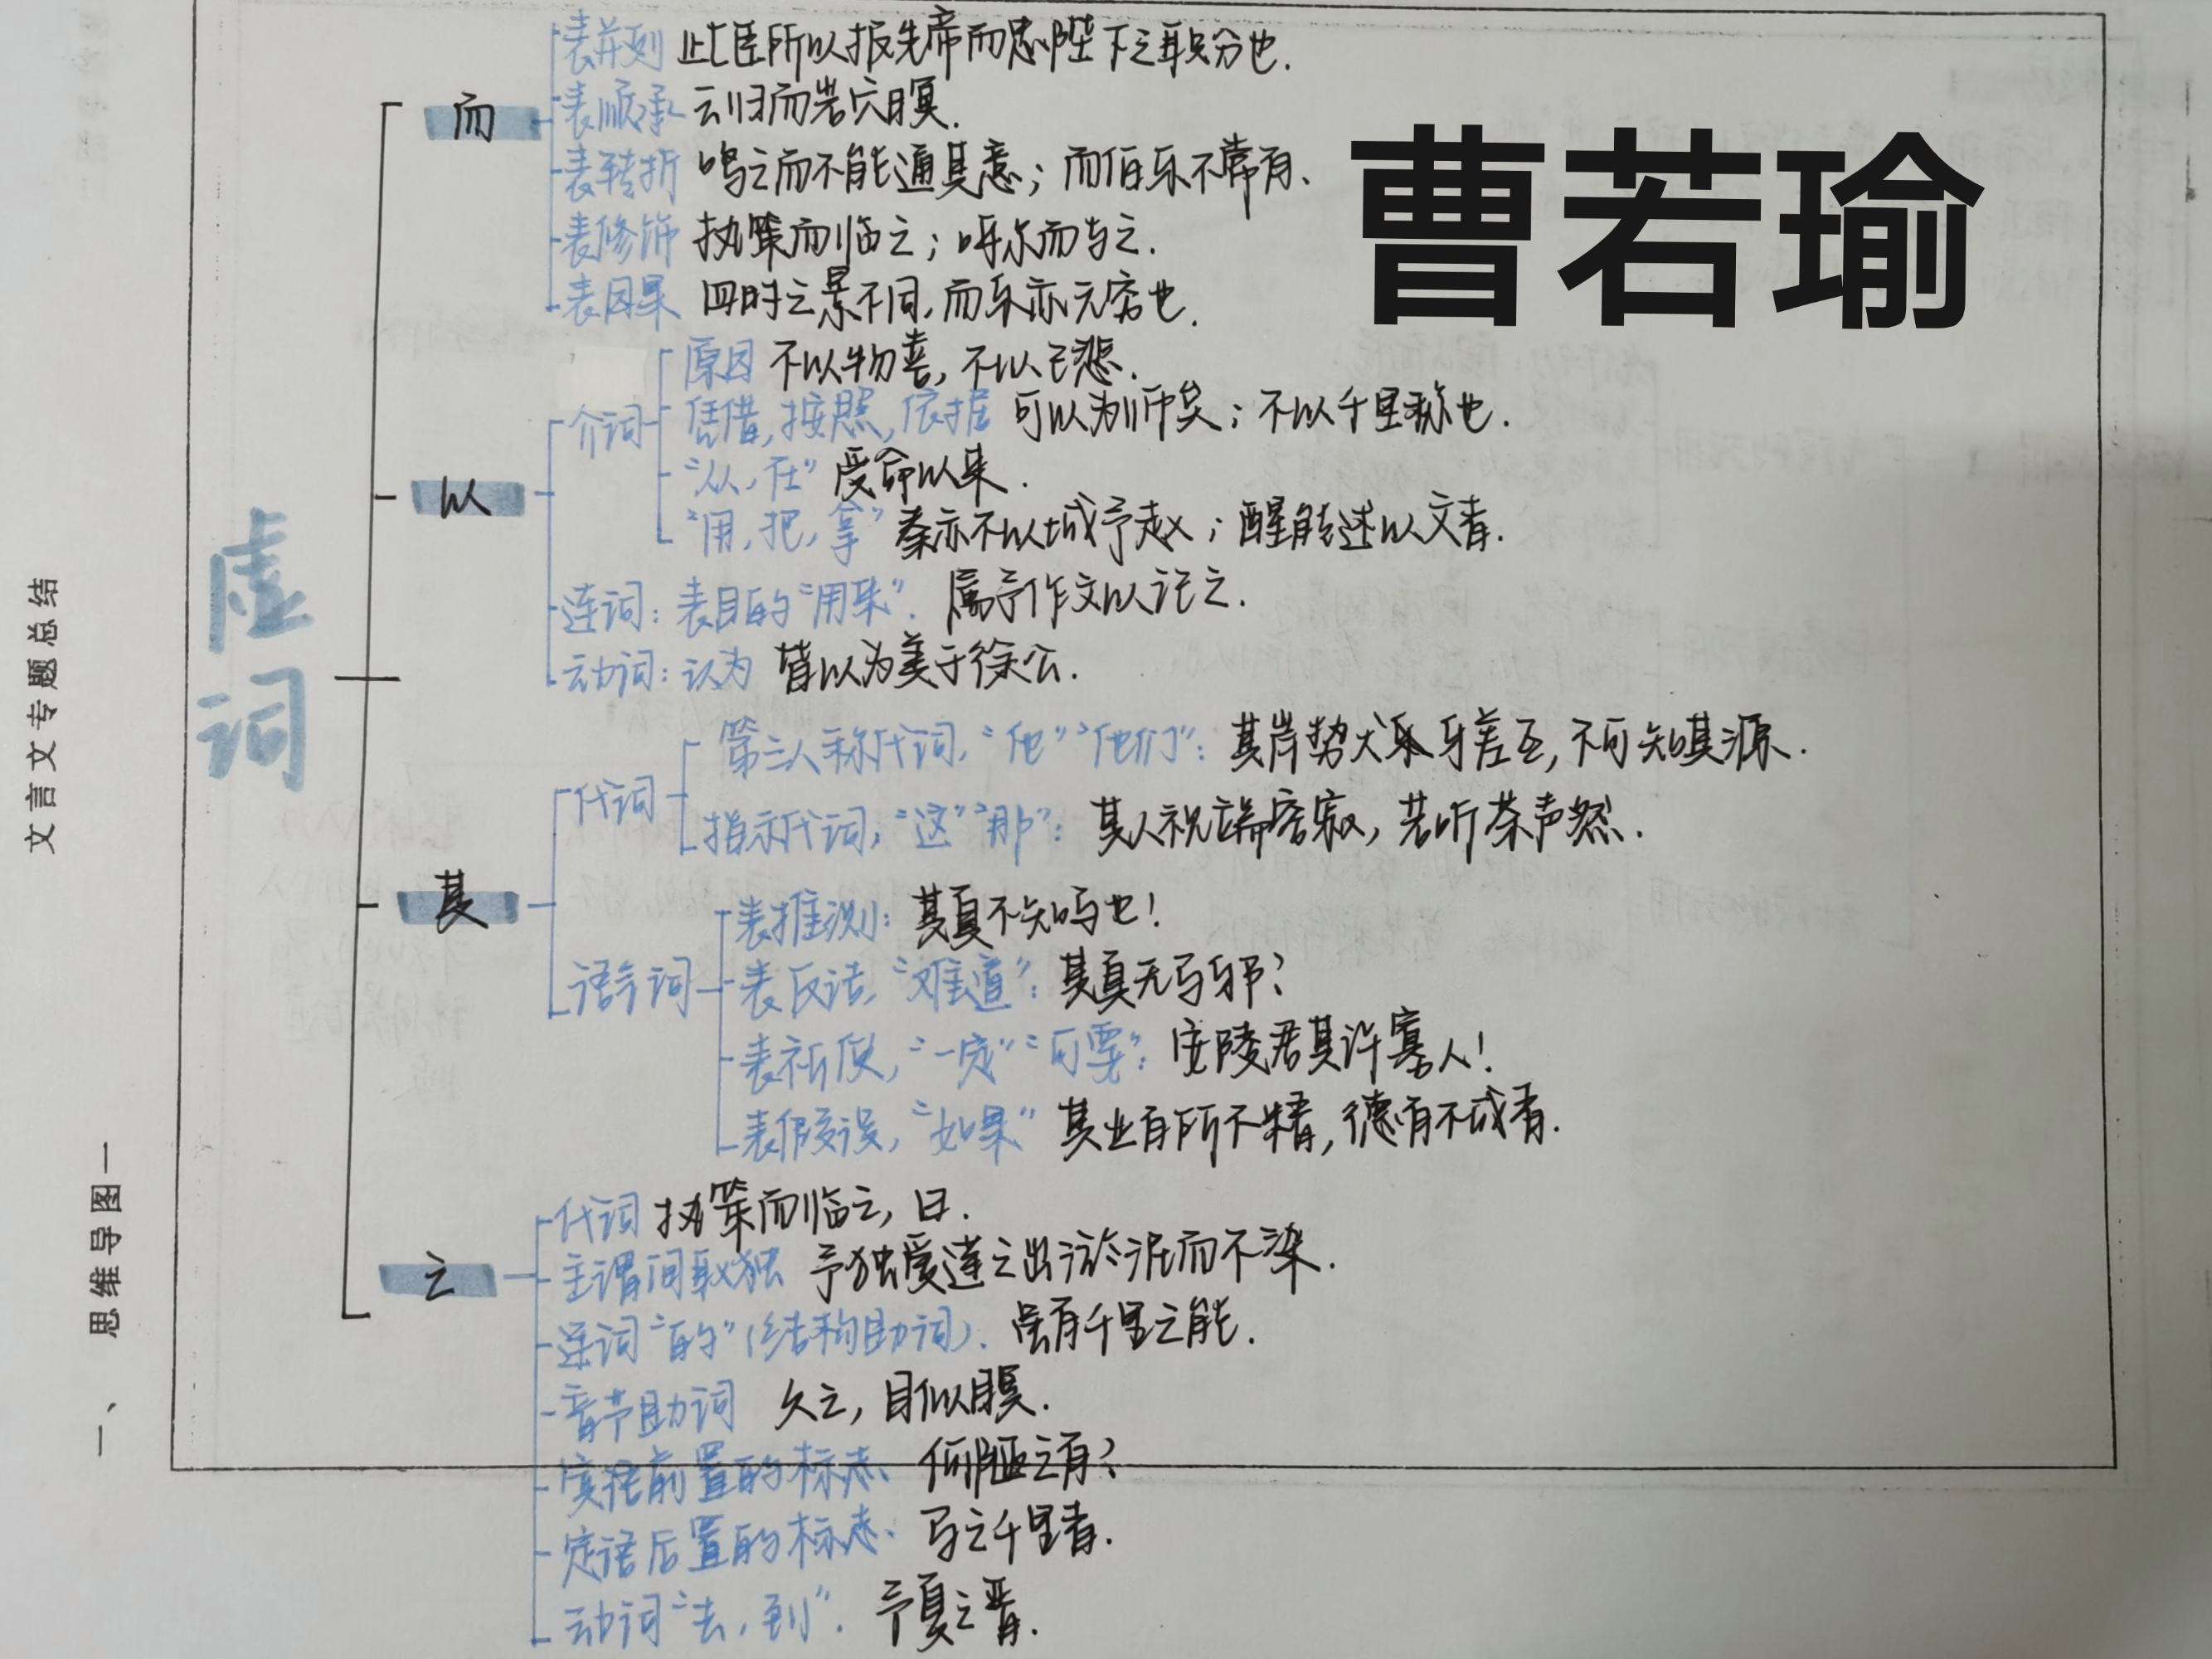 曹若瑜
文言文专题总结
一、思维导图一
虚词
而
表并列 此臣所以报先帝而忠陛下之职分也.
表顺承 云归而岩穴暝.
表转折 鸣之而不能通其意；而伯乐不常有.
表修饰 执策而临之；呼尔而与之.
表因果 四时之景不同,而乐亦无穷也.
以
介词
原因 不以物喜,不以己悲.
凭借,按照,依据 可以为师矣；不以千里称也.
“从,在” 受命以来.
“用,把,拿” 秦亦不以城予赵；醒能述以文者.
连词：表目的“用来”. 属予作文以记之.
动词：认为 皆以为美于徐公.
其
代词
第三人称代词,“他”“他们”：其岸势犬牙差互,不可知其源.
指示代词,“这”“那”：其人视端容寂,若听茶声然.
语气词
表推测：其真不知马也！
表反诘,“难道”：其真无马邪？
表祈使,“一定”“可要”：安陵君其许寡人！
表假设,“如果” 其业有所不精,德有不成者.
之
代词 执策而临之,曰.
主谓间取独 予独爱莲之出淤泥而不染.
连词“的”(结构助词). 虽有千里之能.
音节助词 久之,目似瞑.
宾语前置的标志、何陋之有？
定语后置的标志、马之千里者.
动词“去,到”. 予夏之晋.